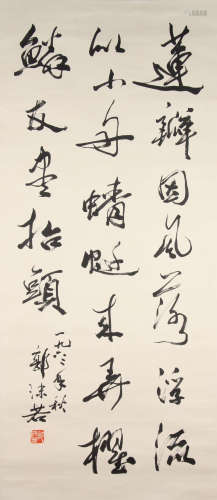 蓮瓣因風落浮流
似小舟蜻蜓來弄櫂
鱗友盡抬頭
一九六三年秋
郭沫若